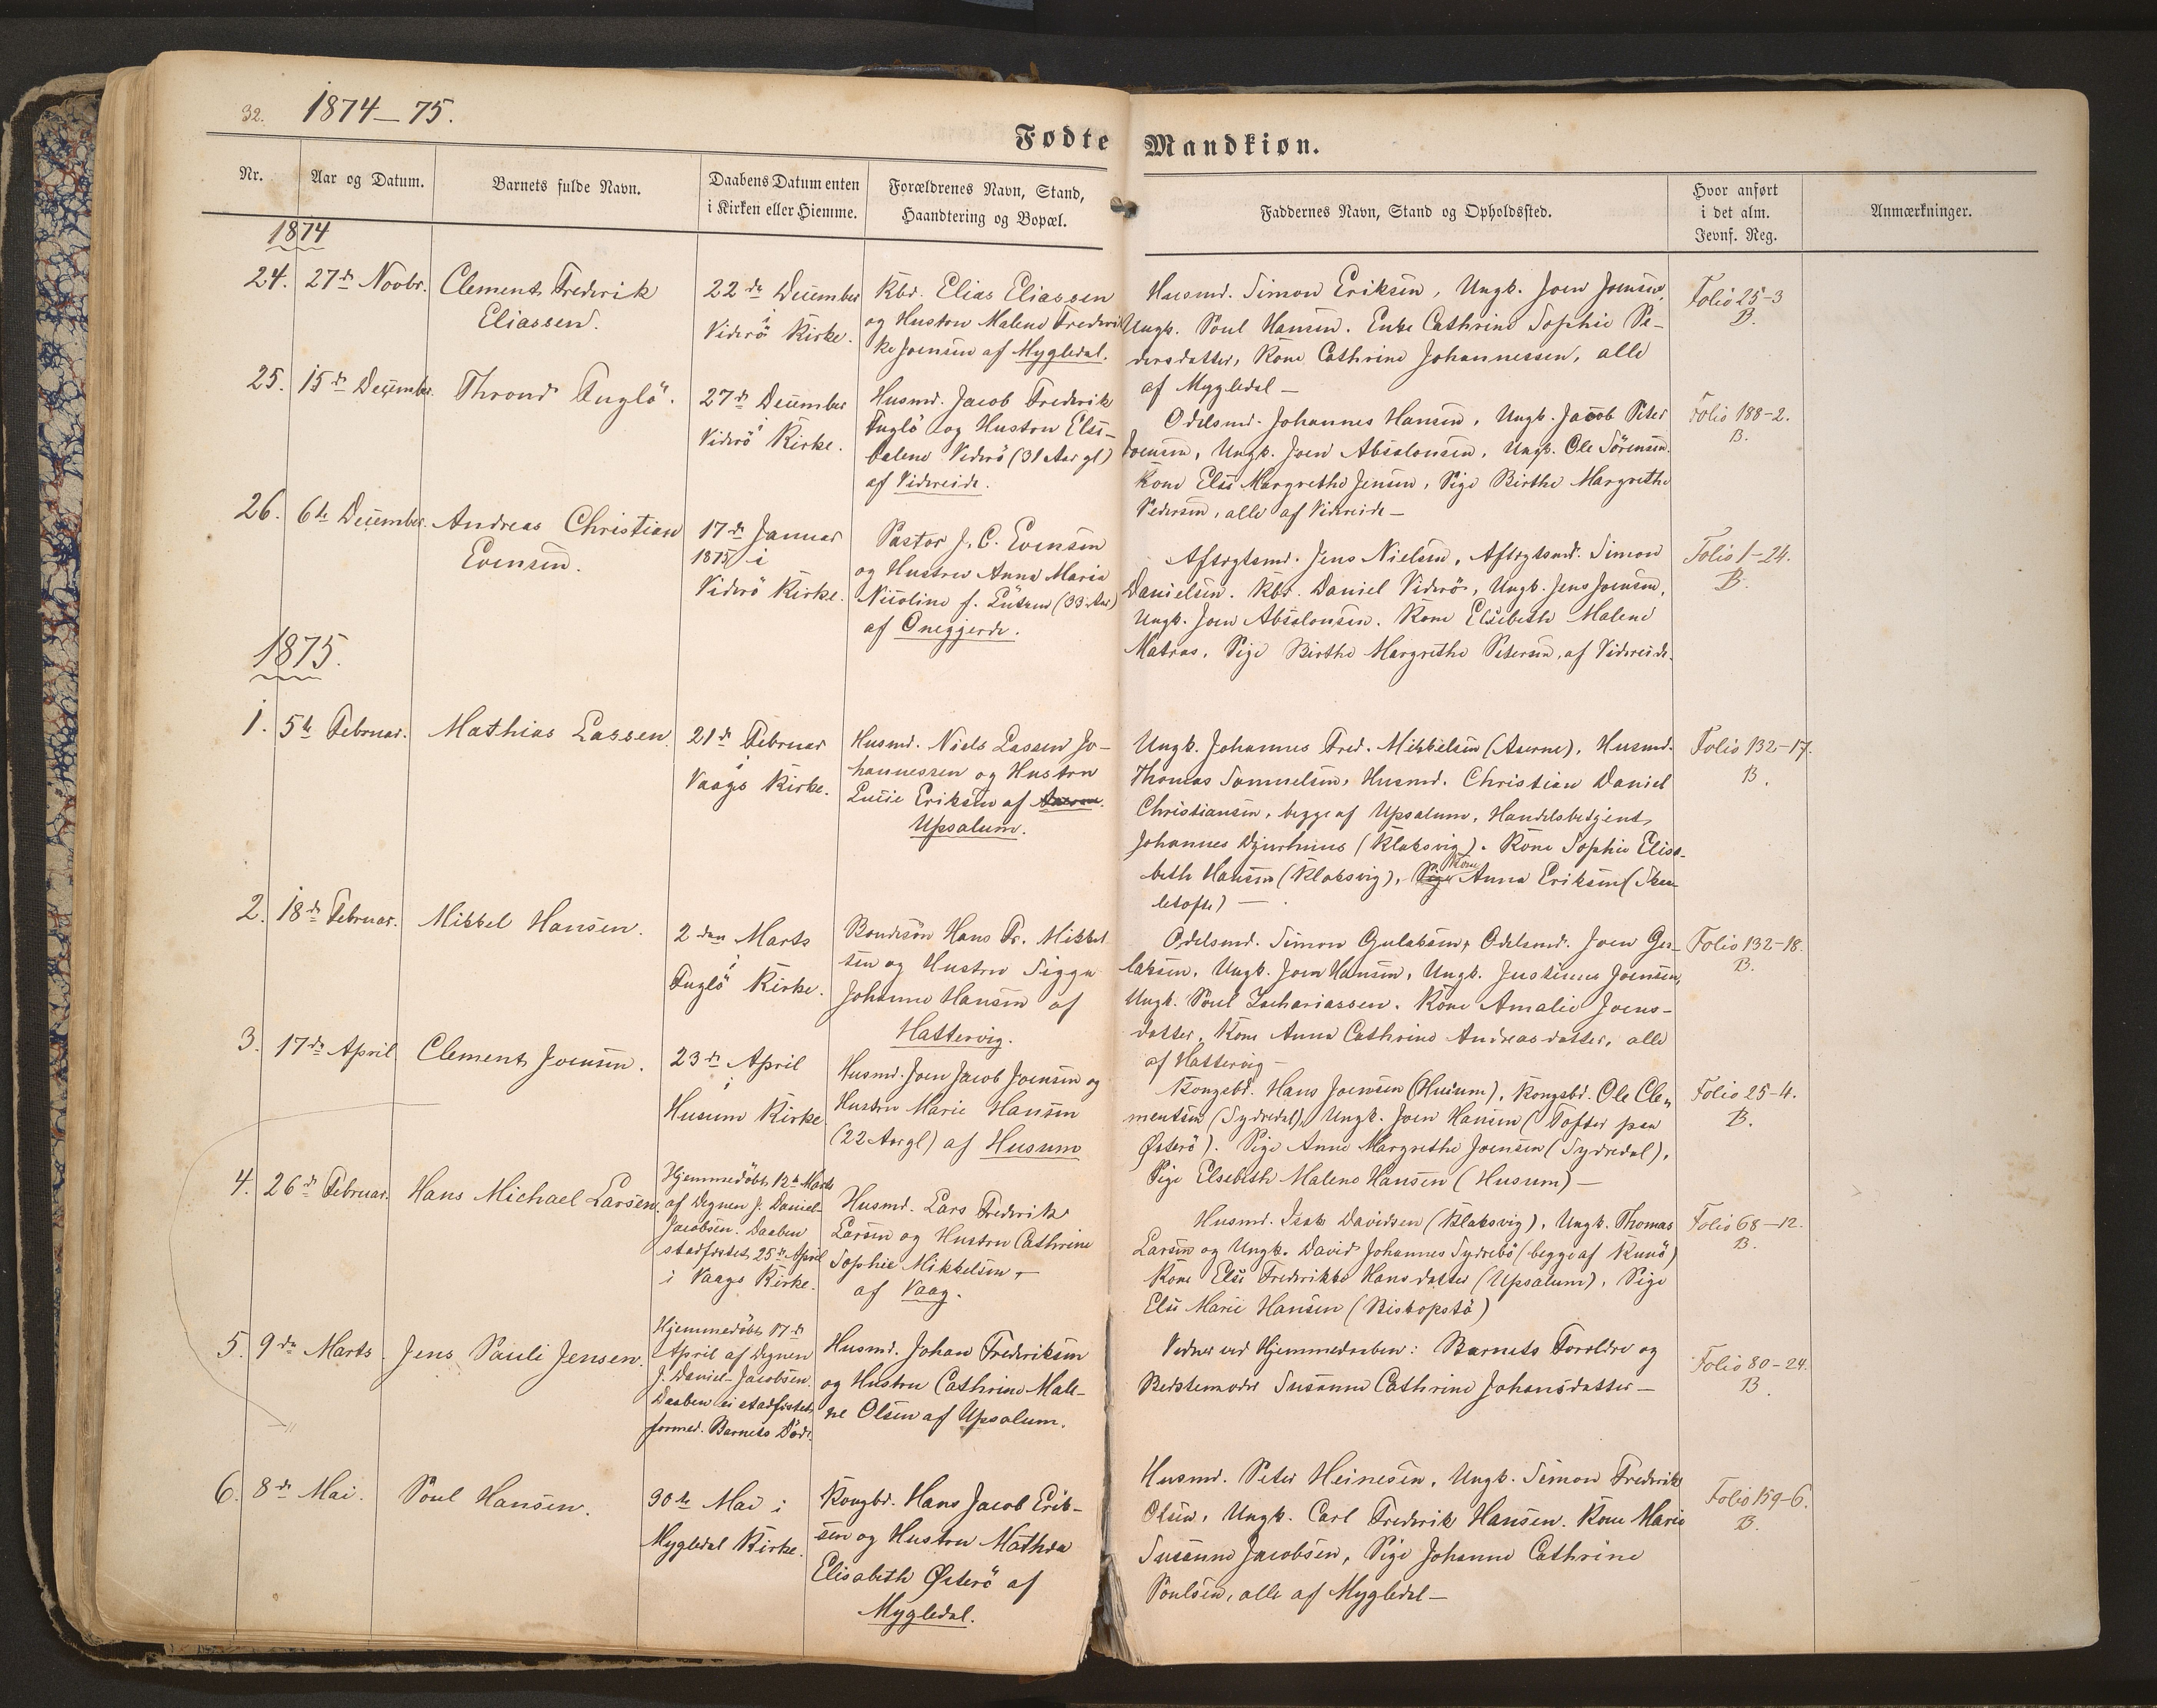 32. 1874–75.
Fødte Mandkiøn.
Nr.
Aar og Datum.
Barnets fulde Navn.
Daabens Datum enten
i Kirken eller Hiemme.
Forældrenes Navn, Stand,
Haandtering og Bopæl.
Faddernes Navn, Stand og Opholdssted.
Hvor anført
i det alm.
Jevnf. Reg.
Anmærkninger.
1874
24. 27de Novbr.
Clement Frederik
Eliassen.
22de December
i
Viderö Kirke.
Kbd. Elias Eliassen
og Hustru Malene Frederik
ke Joensen af Mygledal.
Husmd. Simon Eriksen, Ungk. Joen Joensen,
Ungk. Poul Hansen. Enke Cathrine Sophie Pe-
dersdatter, Kone Cathrine Johannessen, alle
af Mygledal —
Folio 25–3
B.
25. 15de December.
Thrond Fuglö.
27de December
i
Viderö Kirke.
Husmd. Jacob Frederik
Fuglö og Hustru Else-
balene Viderö (31 Aar gl)
af Videreide.
Odelsmd. Johannes Hansen, Ungk. Jacob Peter
Joensen, Ungk. Joen Absalonsen, Ungk. Ole Sörensen.
Kone Else Margrethe Jensen, Pige Birthe Margrethe
Pedersen, alle af Videreide —
Folio 188–2.
B.
26. 6te December.
Andreas Christian
Evensen.
17de Januar
1875 i
Viderö Kirke.
Pastor J. C. Evensen
og Hustru Anna Maria
Nicoline f. Lützen (33 Aar)
af Oneggjerde.
Aftægtsmd. Jens Nielsen, Aftægtsmd. Simon
Danielsen. Kbd. Daniel Viderö, Ungk. Jens Joensen,
Ungk. Joen Absalonsen. Kone Elsebeth Malene
Matras, Pige Birthe Margrethe Petersen, af Videreide.
Folio 1–24.
B.
1875.
1. 5te Februar.
Mathias Lassen.
21de Februar
i
Vaags Kirke.
Husmd. Niels Lassen Jo-
hannessen og Hustru
Lucie Eriksen af
Upsalum.
Ungk. Johannes Fred. Mikkelsen (Aserne), Husmd.
Thomas Samuelsen, Husmd. Christian Daniel
Christiansen, begge af Upsalum, Handelsbetjent
Johannes Djurhuus (Klaksvig). Kone Sophie Elisa-
beth Hansen (Klaksvig), Pige Kone Anna Eriksen (Skaa-
letofte) —
Folio 132–17.
B.
2. 18de Februar.
Mikkel Hansen.
2den Marts
i
Fuglö Kirke.
Bondesön Hans Fr. Mikkel
sen og Hustru Sigga
Johanne Hansen af
Hattervig.
Odelsmd. Simon Gulaksen, Odelsmd. Joen Gu-
laksen, Ungk. Joen Hansen, Ungk. Justinus Joensen,
Ungk. Poul Zachariassen. Kone Amalie Joens-
datter, Kone Anna Cathrine Andreasdatter, alle
af Hattervig —
Folio 132–18.
B.
3. 17de April
Clement Joensen.
23de April
i
Husum Kirke
Husmd. Joen Jacob Joensen og
Hustru Marie Hansen
(22 Aar gl) af Husum
Kongsbd. Hans Joensen (Husum), Kongsbd. Ole Cle-
mentsen (Sydredal), Ungk. Joen Hansen (Tofter paa
Østerö). Pige Anne Margrethe Joensen (Sydredal),
Pige Elsebeth Malene Hansen (Husum) —
Folio 25–4.
B.
4. 26de Februar.
Hans Michael Larsen.
Hjemmedöbt 12te Marts
af Degnen J. Daniel-
Jacobsen. Daaben
stadfæstet 25de April
i Vaags Kirke.
Husmd. Lars Frederik
Larsen og Hustru Cathrine
Sophie Mikkelsen —
af Vaag.
Husmd. Isak Davidsen (Klaksvig), Ungk. Thomas
Larsen og Ungk. David Johannes Sydrebö (begge af Kunö)
Kone Else Frederikke Hansdatter (Upsalum), Pige
Else Marie Hansen (Biskopstö)
Folio 68–12.
B.
5. 9de Marts.
Jens Pauli Jensen.
Hjemmedöbt 17de
April af Degnen
J. Daniel-Jacobsen.
Daaben ei stadfæstet
formed. Barnets Död.
Husmd. Johan Frederiksen
og Hustru Cathrine Male-
ne Olsen af Upsalum.
Vidner ved Hjemmedaaben: Barnets Forældre og
Bedstemoder Susanne Cathrine Johansdatter —
Folio 80–24.
B.
6. 8de Mai.
Poul Hansen.
30te Mai i
Mygledal Kirke.
Kongbd. Hans Jacob Erik-
sen og Hustru Mathea
Elisabeth Østerö af
Mygledal.
Husmd. Peter Heinesen, Ungk. Simon Frederik
Olsen, Ungk. Carl Frederik Hansen. Kone Marie
Susanne Jacobsen, Pige Johanne Cathrine
Poulsen, alle af Mygledal —
Folio 159–6.
B.